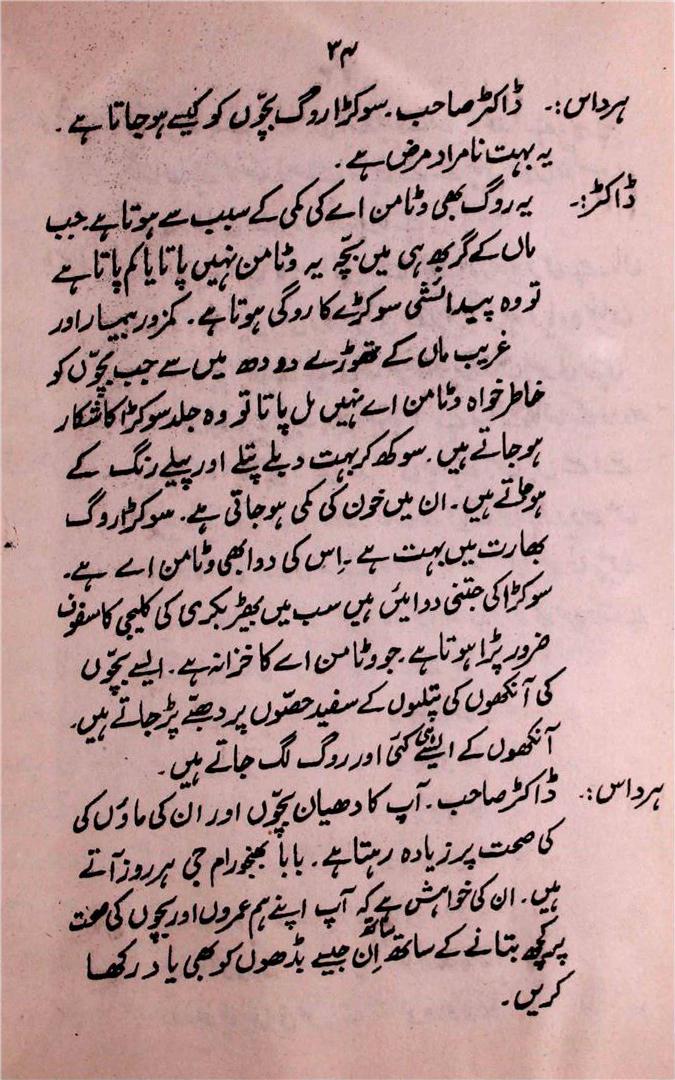 ۳۴
ہرداس:۔ ڈاکٹر صاحب۔ سوکڑا روگ بچّوں کو کیسے ہو جاتا ہے۔
یہ بہت نامراد مرض ہے۔
ڈاکٹر:۔ یہ روگ بھی وٹامن اے کی کمی کے سبب سے ہوتا ہے۔ جب
ماں کے گربھ ہی میں بچّہ یہ وٹامن نہیں پاتا یا کم پاتا ہے
تو وہ پیدائشی سوکڑے کا روگی ہوتا ہے۔ کمزور بیمار اور
غریب ماں کے تھوڑے دودھ میں سے جب بچّوں کو
خاطر خواہ وٹامن اے نہیں مل پاتا تو وہ جلد سوکڑا کا شکار
ہو جاتے ہیں۔ سوکھ کر بہت دبلے پتلے اور پیلے رنگ کے
ہو جاتے ہیں۔ ان میں خون کی کمی ہو جاتی ہے۔ سوکڑا روگ
بھارت میں بہت ہے۔ اِس کی دوا بھی وٹامن اے ہے۔
سوکڑا کی جتنی دوائیں ہیں سب میں بھیڑ بکری کی کلیجی کا سفوف
ضرور پڑا ہوتا ہے۔ جو وٹامن اے کا خزانہ ہے۔ ایسے بچّوں
کی آنکھوں کی پتلیوں کے سفید حصّوں پر دھبّے پڑ جاتے ہیں۔
آنکھوں کے ایسے ہی کئی اور روگ لگ جاتے ہیں۔
ہرداس:۔ ڈاکٹر صاحب۔ آپ کا دھیان بچّوں اور ان کی ماؤں کی
کی صحت پر زیادہ رہتا ہے۔ بابا بھنجو رام جی ہر روز آتے
ہیں۔ ان کی خواہش ہے کہ آپ اپنے ہم عمروں اور بچوں کی صحت
پر کچھ بتانے کے ساتھ ساتھ اِن جیسے بڈھوں کو بھی یاد رکھا
کریں۔